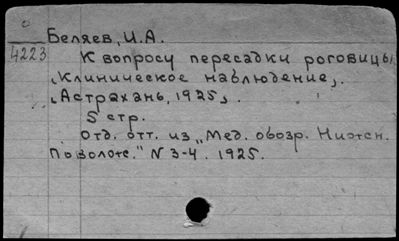 Беляев, И.А.
4223
К вопросу пересадки роговицы
(Клиническое наблюдение).
(Астрахань, 1925).
5 стр.
Отд. отт. из „Мед. обозр. Нижн.
Поволж." N 3-4. 1925.